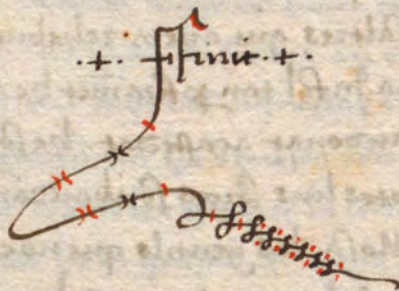 ·+· ffinit ·+·